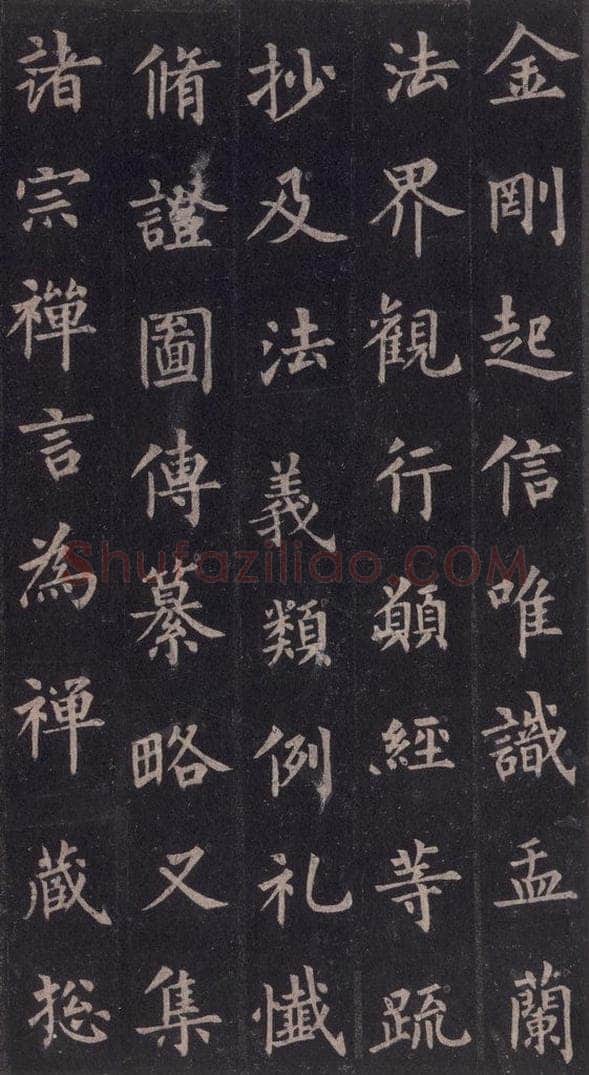 金剛起信唯識盂蘭
法界觀行願經等疏
抄及法義類例礼懺
脩證圖傳纂略又集
諸宗禪言為禅蔵揔
Shufaziliao.COM